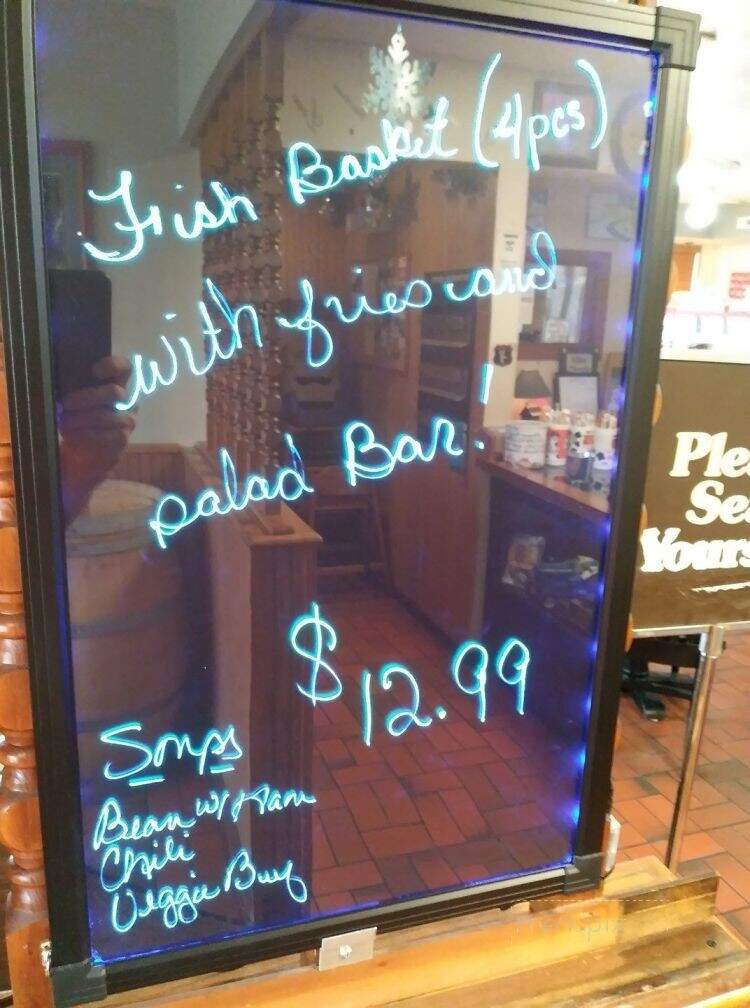 Fish Basket (4pcs)
with fries and
salad Bar!
$12.99
Soups
Bean w/ Ham
Chili
Veggie Beef
Ple
Se
Yours